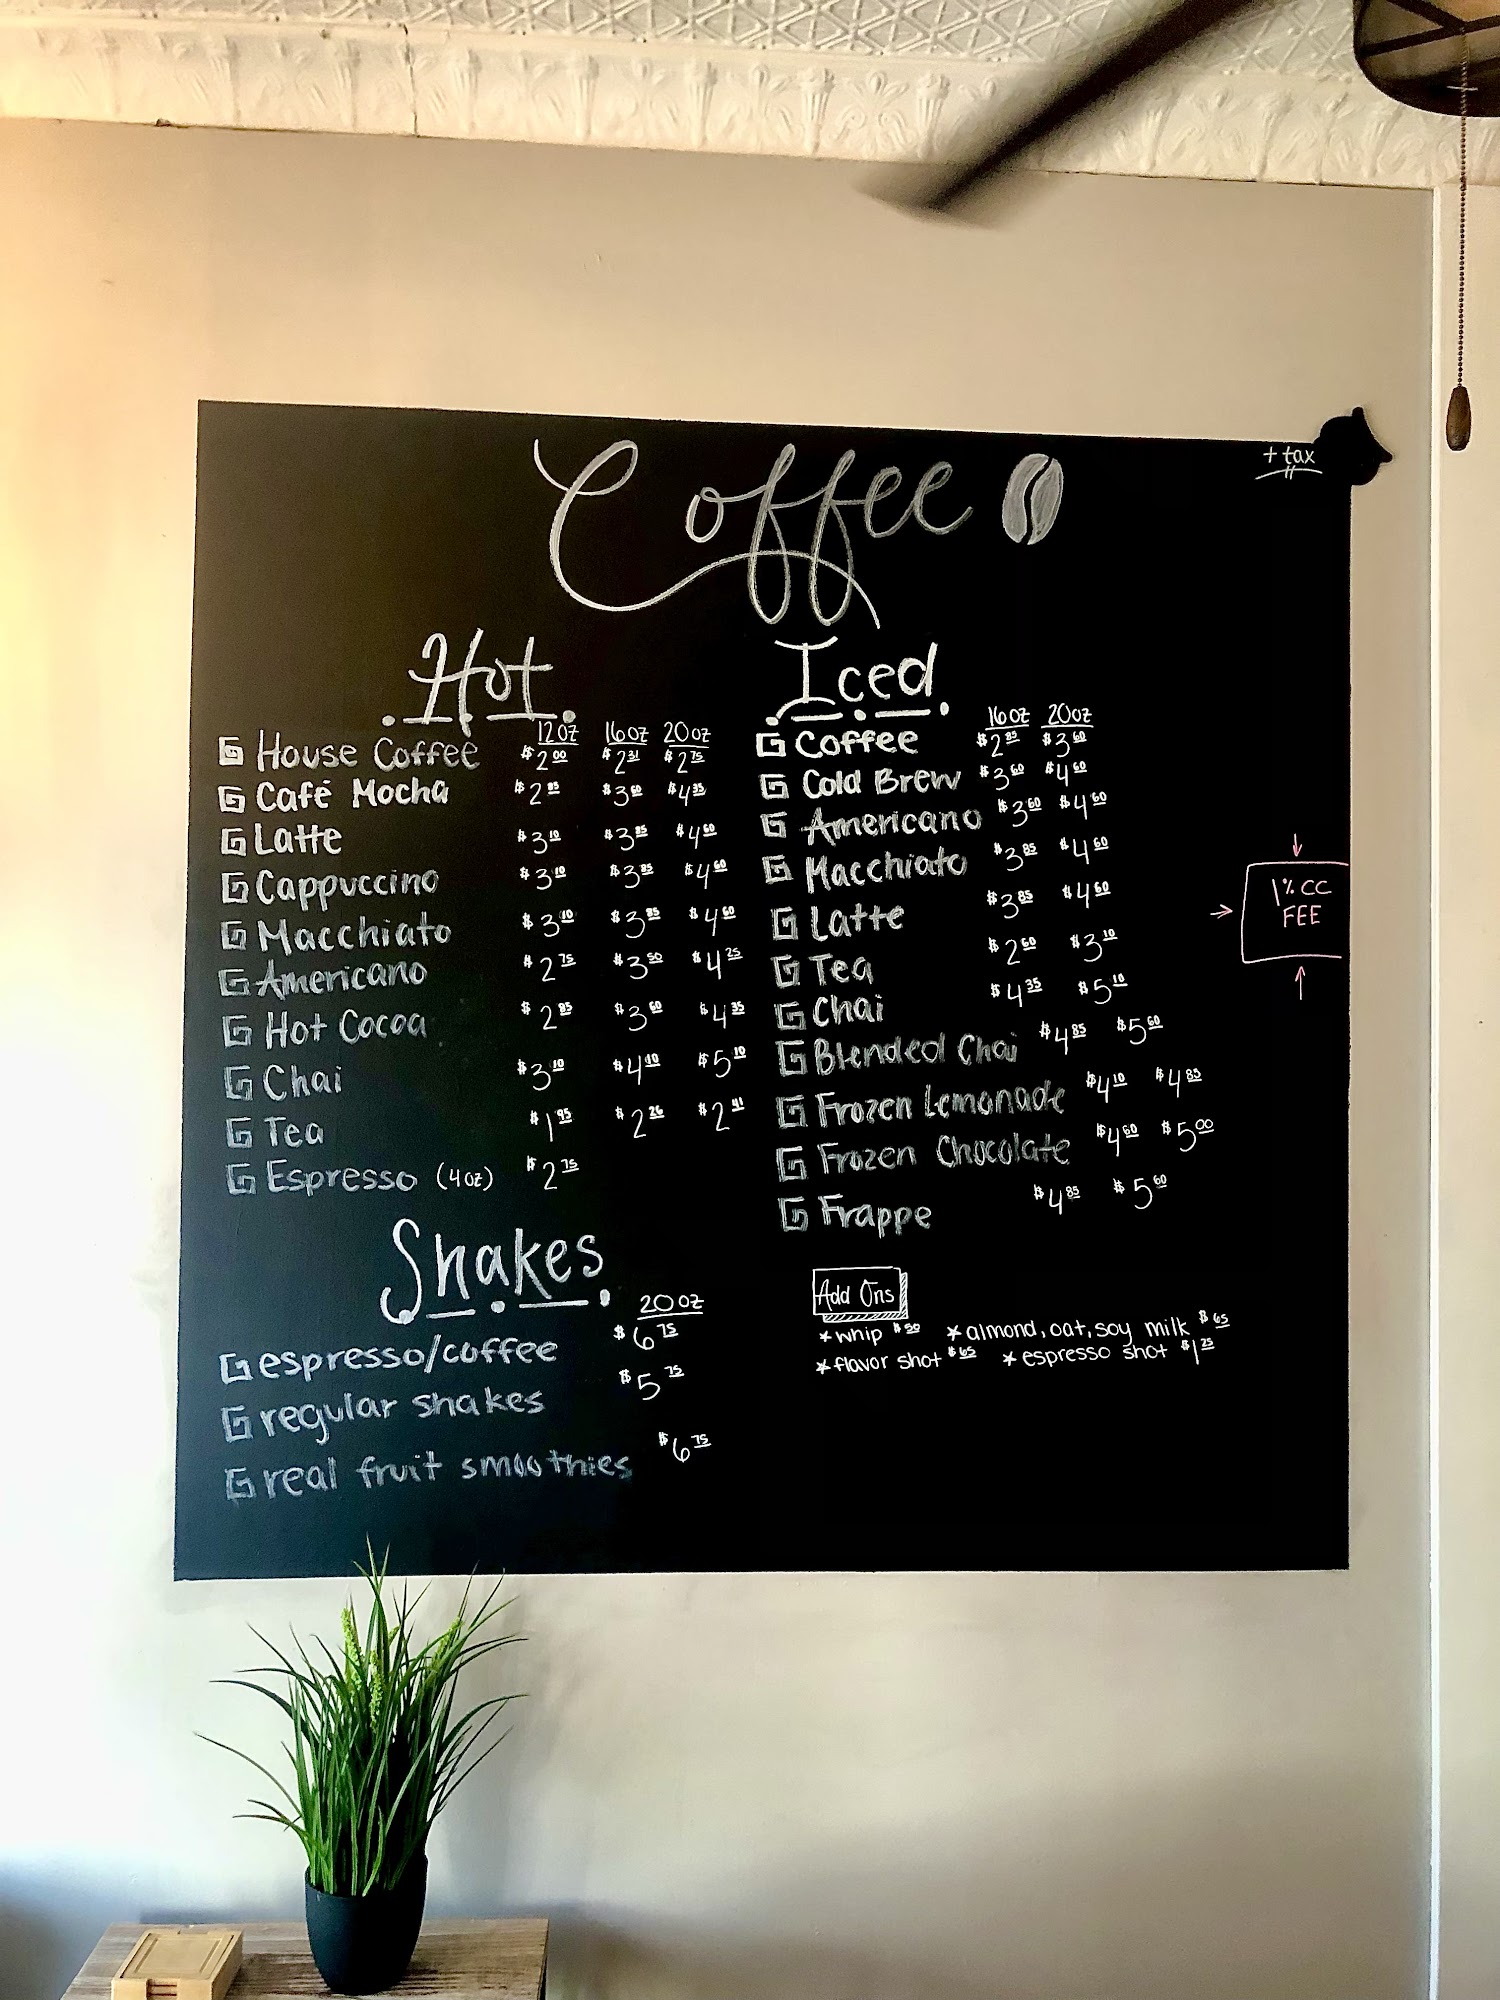 Coffee
+ tax
Hot
12oz 16oz 20oz
House Coffee $2.00 $2.31 $2.75
Café Mocha $2.85 $3.60 $4.35
Latte $3.10 $3.85 $4.60
Cappuccino $3.10 $3.85 $4.60
Macchiato $3.10 $3.85 $4.60
Americano $2.75 $3.50 $4.25
Hot Cocoa $2.85 $3.60 $4.35
Chai $3.10 $4.10 $5.10
Tea $1.95 $2.26 $2.41
Espresso (4oz) $2.75
Shakes
20oz
espresso/coffee $6.75
regular shakes $5.75
real fruit smoothies $6.75
Iced
16oz 20oz
Coffee $2.85 $3.60
Cold Brew $3.60 $4.60
Americano $3.60 $4.60
Macchiato $3.85 $4.60
Latte $3.85 $4.60
Tea $2.60 $3.10
Chai $4.35 $5.10
Blended Chai $4.85 $5.60
Frozen Lemonade $4.10 $4.85
Frozen Chocolate $4.60 $5.00
Frappe $4.85 $5.60
Add Ons
*whip $.50 *almond, oat, soy milk $.65
*flavor shot $.65 *espresso shot $1.25
1% CC
FEE